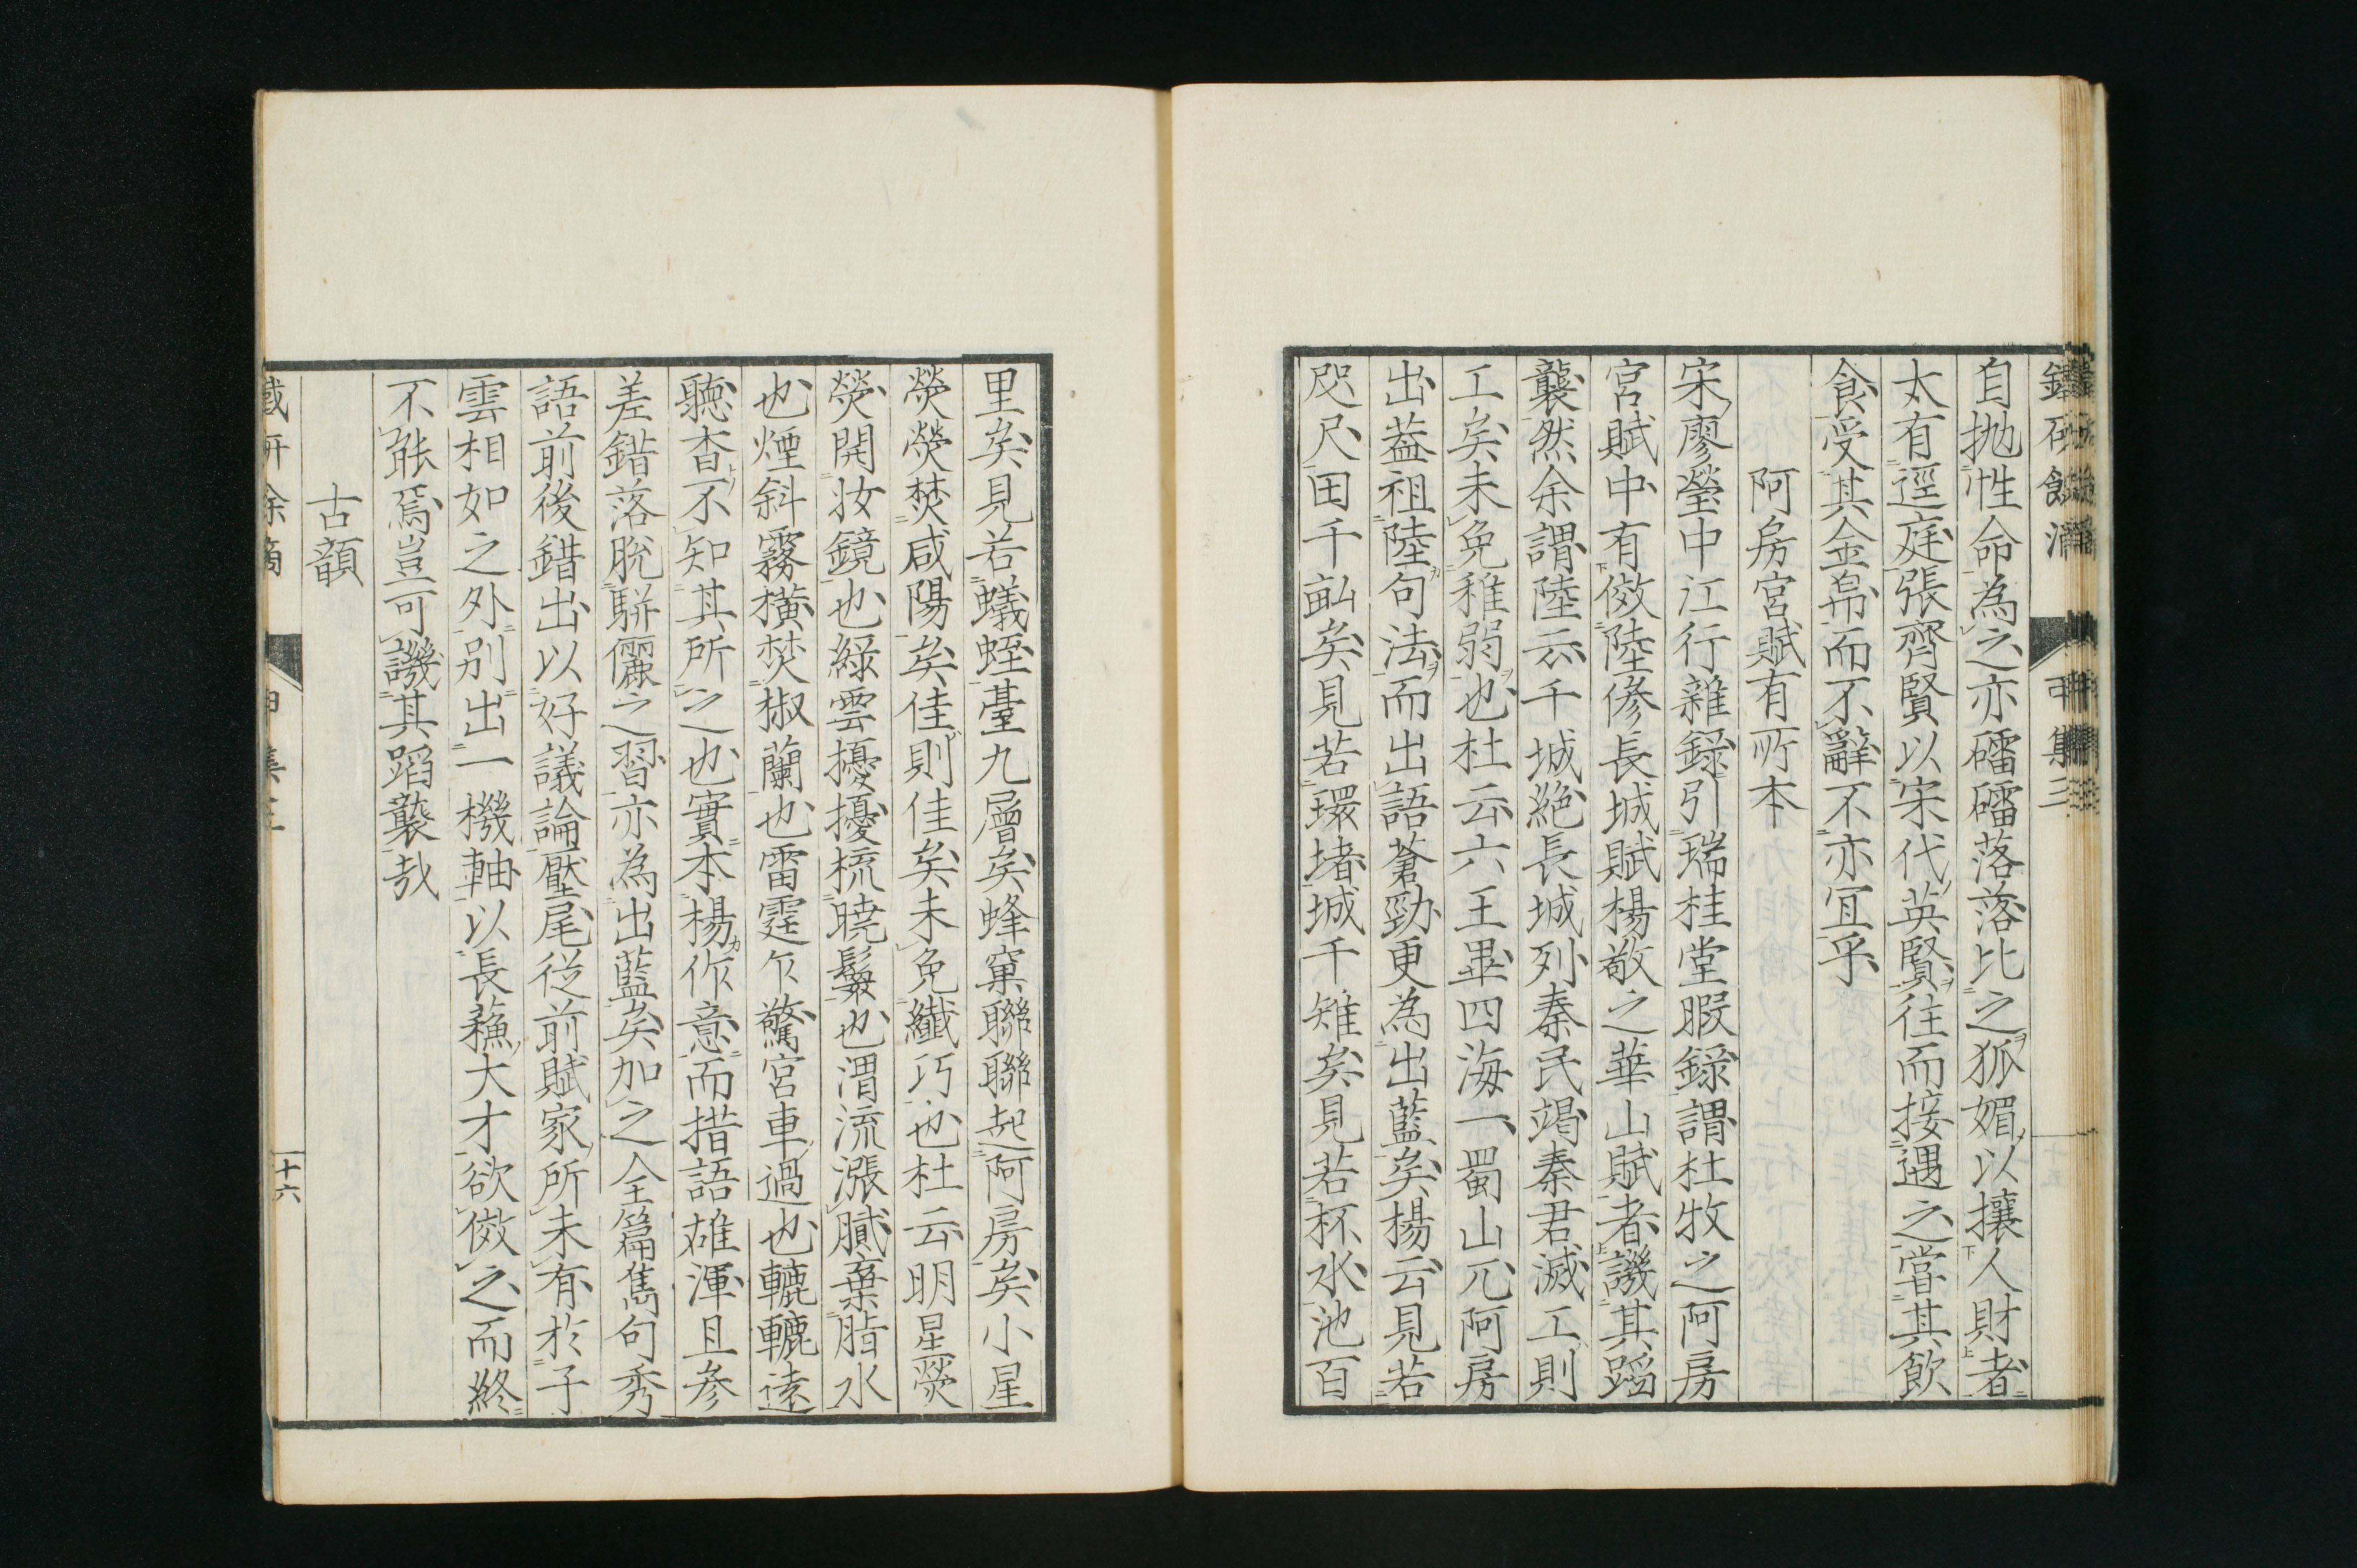 自抛性命為之亦礌礌落落比之狐媚以攘人財者
太有逕庭張齊賢以宋代英賢往而接遇之當其飲
食受其金帛而不辭不亦宜乎
阿房宮賦有所本
宋廖瑩中江行雜録引瑞桂堂暇録謂杜牧之阿房
宮賦中有傚陸傪長城賦楊敬之華山賦者譏其蹈
襲然余謂陸云千城絶長城列秦民竭秦君滅工則
工矣未免稚弱也杜云六王畢四海一蜀山兀阿房
出蓋祖陸句法而出語蒼勁更為出藍矣楊云見若
咫尺田千畝矣見若環堵城千雉矣見若杯水池百
里矣見若蟻蛭臺九層矣蜂窠聯聯起阿房矣小星
熒熒焚咸陽矣佳則佳矣未免纖巧也杜云明星熒
熒開妝鏡也綠雲擾擾梳曉鬟也渭流漲膩棄脂水
也煙斜霧橫焚椒蘭也雷霆乍驚宮車過也轆轆遠
聽杳不知其所之也實本楊作意而措語雄渾且參
差錯落脫駢儷之習亦為出藍矣加之全篇雋句秀
語前後錯出以好議論壓尾從前賦家所未有於子
雲相如之外別出一機軸以長蘇大才欲傚之而終
不能焉豈可譏其蹈襲哉
古韻
十六